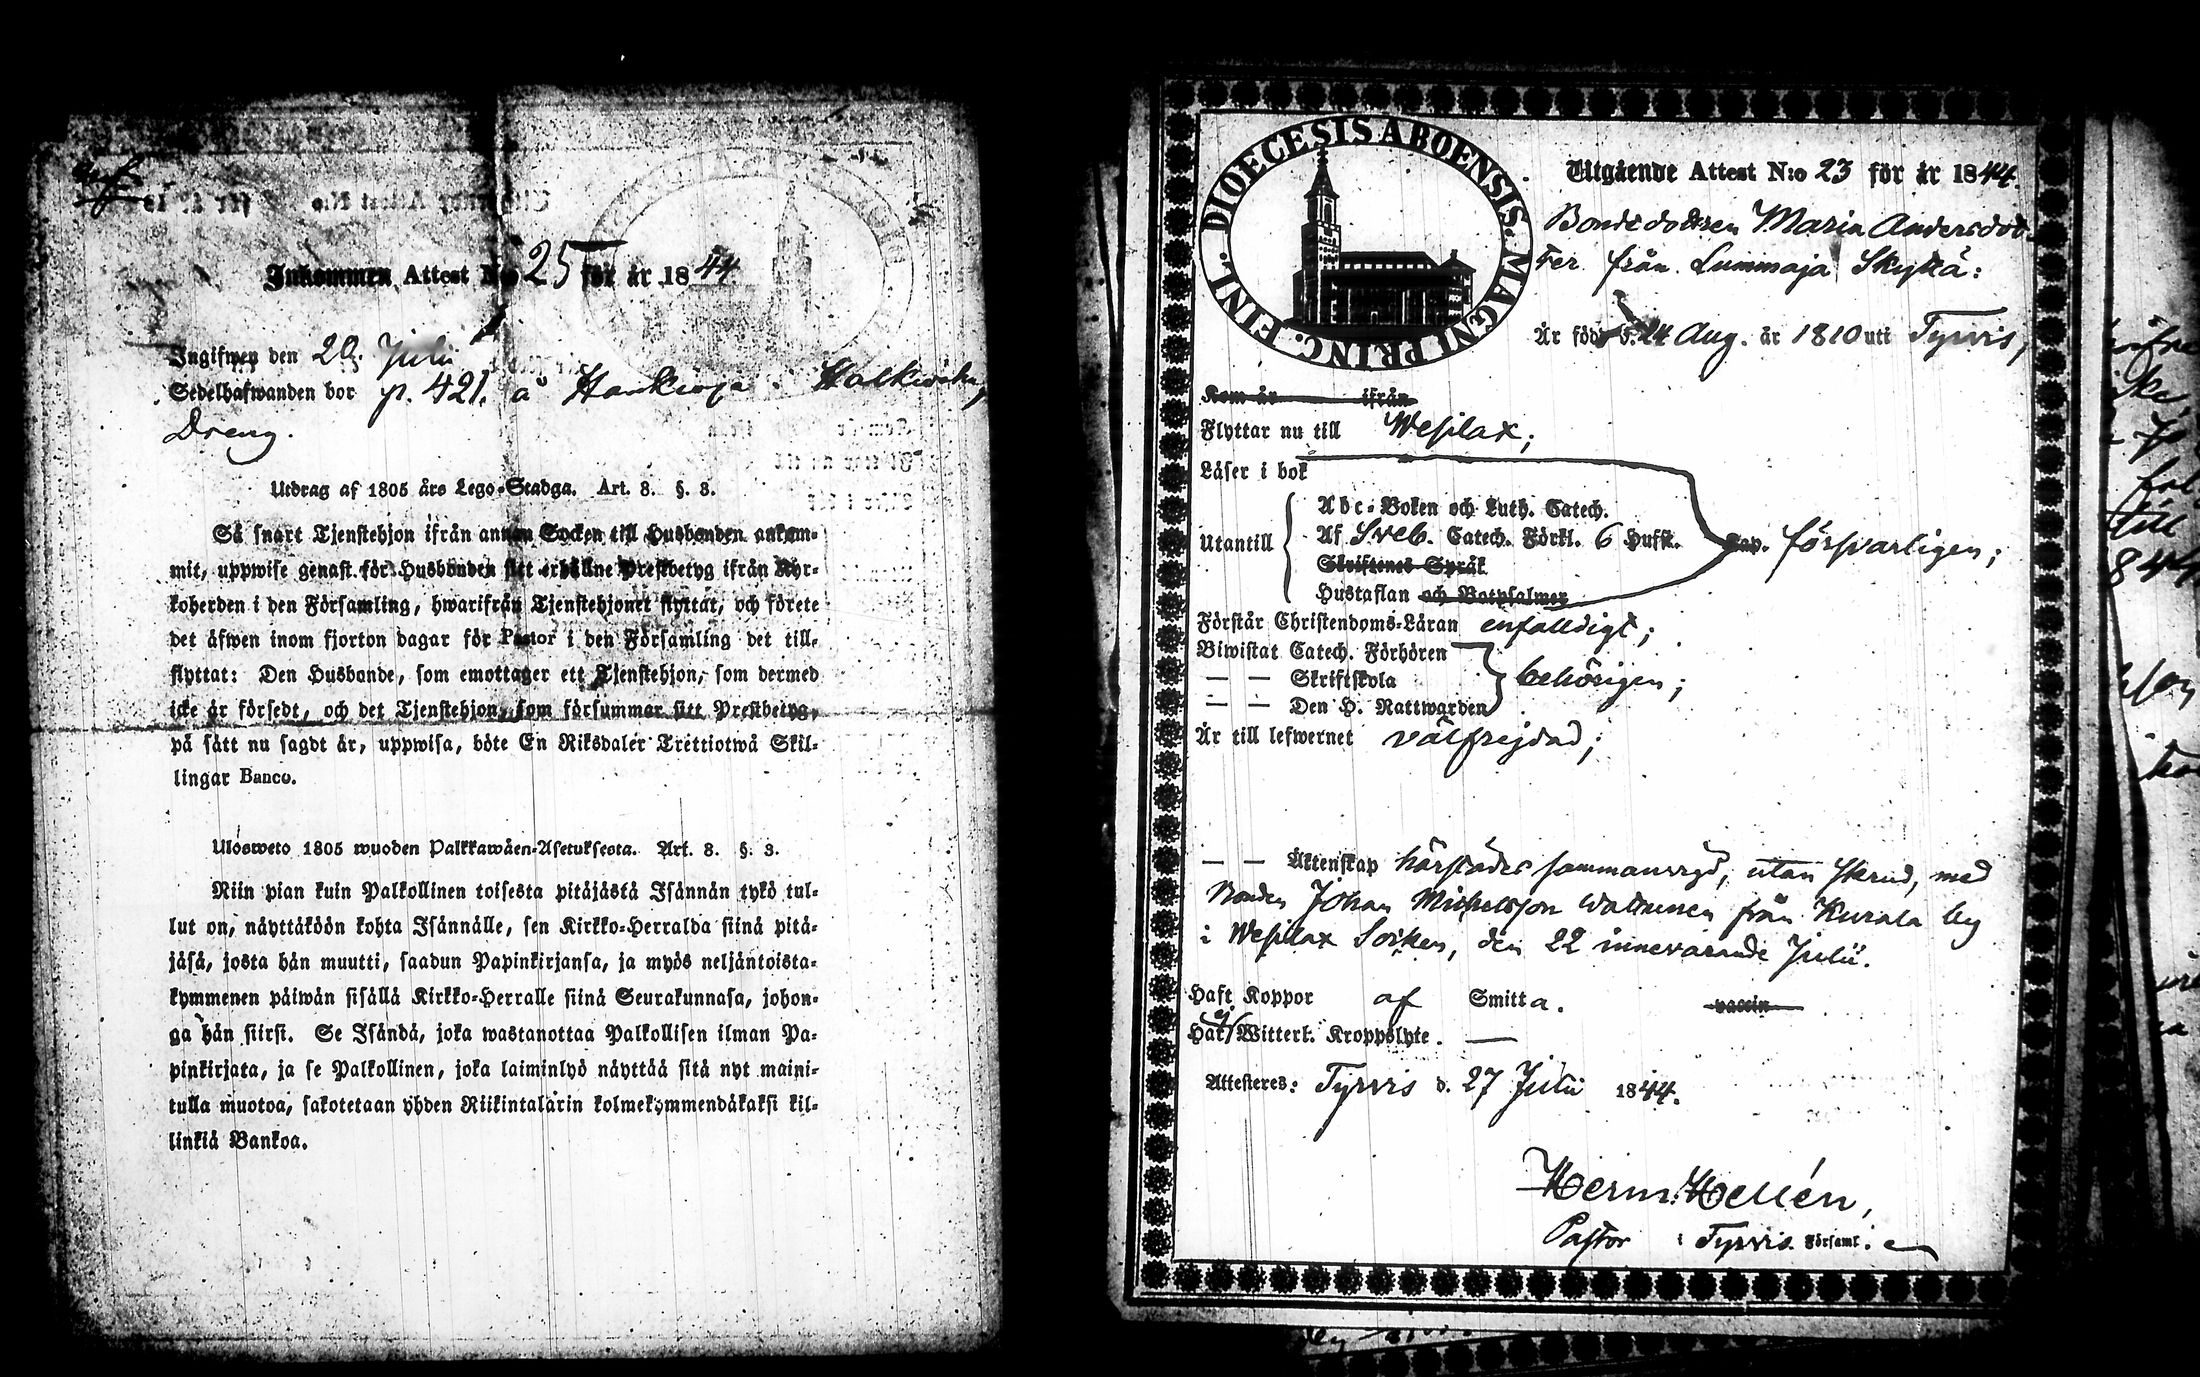 Inkommen Attest N:o 25 för år 1844
Ingifwen den 20. Julii
Sedelhafwanden bor p. 421. å
Dreng.
Utdrag af 1805 års Lego-Stadga. Art. 8. §. 3.
Så snart Tjenstehjon ifrån annan Socken till Husbonden ankom-
mit, uppwise genast för Husbonden sitt erhållne Prestbetyg ifrån Kyr-
koherden i den Församling, hwarifrån Tjenstehjonet flyttat, och förete
det äfwen inom fjorton dagar för Pastor i den Församling det till-
flyttat: Den Husbonde, som emottager ett Tjenstehjon, som dermed
icke är försedt, och det Tjenstehjon, som försummar sitt Prestbetyg,
på sätt nu sagdt är, uppwisa, böte En Riksdaler Trettiotwå Skil-
lingar Banco.
Ulosweto 1805 wuoden Palkkawäen-Asetuksesta. Art. 8. §. 3.
Niin pian kuin Palkollinen toisesta pitäjästä Isännän tykö tul-
lut on, näyttäköön kohta Isännälle, sen Kirkko-Herralda siinä pitä-
jäsä, josta hän muutti, saadun Papinkirjansa, ja myös neljäntoista-
kymmenen päiwän sisällä Kirkko-Herralle siinä Seurakunnasa, johon-
ga hän siirsi. Se Isändä, joka wastanottaa Palkollisen ilman Pa-
pinkirjata, ja se Palkollinen, joka laiminlyö näyttää sitä nyt maini-
tulla muotoa, sakotetaan yhden Riikintalarin kolmekymmendäkaksi kil-
linkiä Bankoa.
DIOECESIS ABOENSIS. MAGNI PRINC. FINL.
Utgående Attest N:o 23 för år 1844.
Bondedottren Maria Andersdot-
ter från Lummaja Skyttä:
Är född d. 24 Aug. år 1810 uti Tyrvis,
Kom år ifrån
Flyttar nu till Wesilax;
Läser i bok
Utantill
Abc-Boken och Luth. Catech.
Af Sveb. Catech. Förkl. 6 Hufst. Cap. försvarligen;
Skriftenes Språk
Hustaflan och Botpsalmer
Förstår Christendoms-Läran enfalldigt;
Biwistat Catech. Förhören
— — Skriftskola behörigen;
— — Den H. Nattwarden
Är till lefwernet välfrejdad;
— — Äktenskap härstädes sammanvigd, utan skrud, med
Bonden Johan Michelsson Waltunen från Kurala by
i Wesilax Socken, den 22 innevarande Julii.
Haft Koppor af Smitta. vaccin
Har ej Witterl. Kroppslyte. —
Attesteres: Tyrvis d. 27 Julii 1844.
Herm. Hellén,
Pastor i Tyrvis Församl.